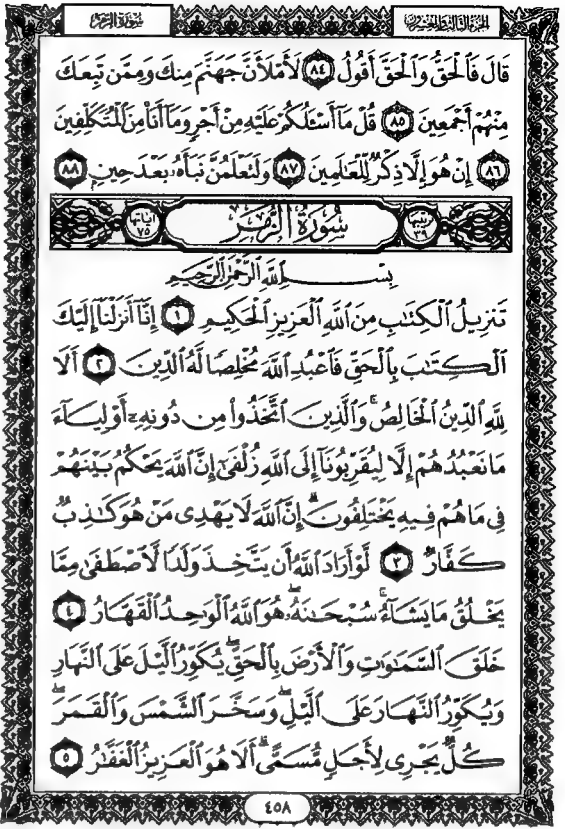 الجزء الثالث والعشرون
سورة الزمر
قَالَ فَٱلْحَقُّ وَٱلْحَقَّ أَقُولُ ٨٤ لَأَمْلَأَنَّ جَهَنَّمَ مِنكَ وَمِمَّن تَبِعَكَ
مِنْهُمْ أَجْمَعِينَ ٨٥ قُلْ مَآ أَسْـَٔلُكُمْ عَلَيْهِ مِنْ أَجْرٍ وَمَآ أَنَا۠ مِنَ ٱلْمُتَكَلِّفِينَ
٨٦ إِنْ هُوَ إِلَّا ذِكْرٌ لِّلْعَٰلَمِينَ ٨٧ وَلَتَعْلَمُنَّ نَبَأَهُۥ بَعْدَ حِينٍۭ ٨٨
ترتيبها ٣٩ سُورَةُ الزُّمَرِ آياتها ٧٥
بِسْمِ ٱللَّهِ ٱلرَّحْمَٰنِ ٱلرَّحِيمِ
تَنزِيلُ ٱلْكِتَٰبِ مِنَ ٱللَّهِ ٱلْعَزِيزِ ٱلْحَكِيمِ ١ إِنَّآ أَنزَلْنَآ إِلَيْكَ
ٱلْكِتَٰبَ بِٱلْحَقِّ فَٱعْبُدِ ٱللَّهَ مُخْلِصًا لَّهُ ٱلدِّينَ ٢ أَلَا
لِلَّهِ ٱلدِّينُ ٱلْخَالِصُ ۚ وَٱلَّذِينَ ٱتَّخَذُوا۟ مِن دُونِهِۦٓ أَوْلِيَآءَ
مَا نَعْبُدُهُمْ إِلَّا لِيُقَرِّبُونَآ إِلَى ٱللَّهِ زُلْفَىٰٓ إِنَّ ٱللَّهَ يَحْكُمُ بَيْنَهُمْ
فِى مَا هُمْ فِيهِ يَخْتَلِفُونَ ۗ إِنَّ ٱللَّهَ لَا يَهْدِى مَنْ هُوَ كَٰذِبٌ
كَفَّارٌ ٣ لَّوْ أَرَادَ ٱللَّهُ أَن يَتَّخِذَ وَلَدًا لَّٱصْطَفَىٰ مِمَّا
يَخْلُقُ مَا يَشَآءُ ۚ سُبْحَٰنَهُۥ ۖ هُوَ ٱللَّهُ ٱلْوَٰحِدُ ٱلْقَهَّارُ ٤
خَلَقَ ٱلسَّمَٰوَٰتِ وَٱلْأَرْضَ بِٱلْحَقِّ ۖ يُكَوِّرُ ٱلَّيْلَ عَلَى ٱلنَّهَارِ
وَيُكَوِّرُ ٱلنَّهَارَ عَلَى ٱلَّيْلِ ۖ وَسَخَّرَ ٱلشَّمْسَ وَٱلْقَمَرَ ۖ
كُلٌّ يَجْرِى لِأَجَلٍ مُّسَمًّى ۗ أَلَا هُوَ ٱلْعَزِيزُ ٱلْغَفَّٰرُ ٥
٤٥٨